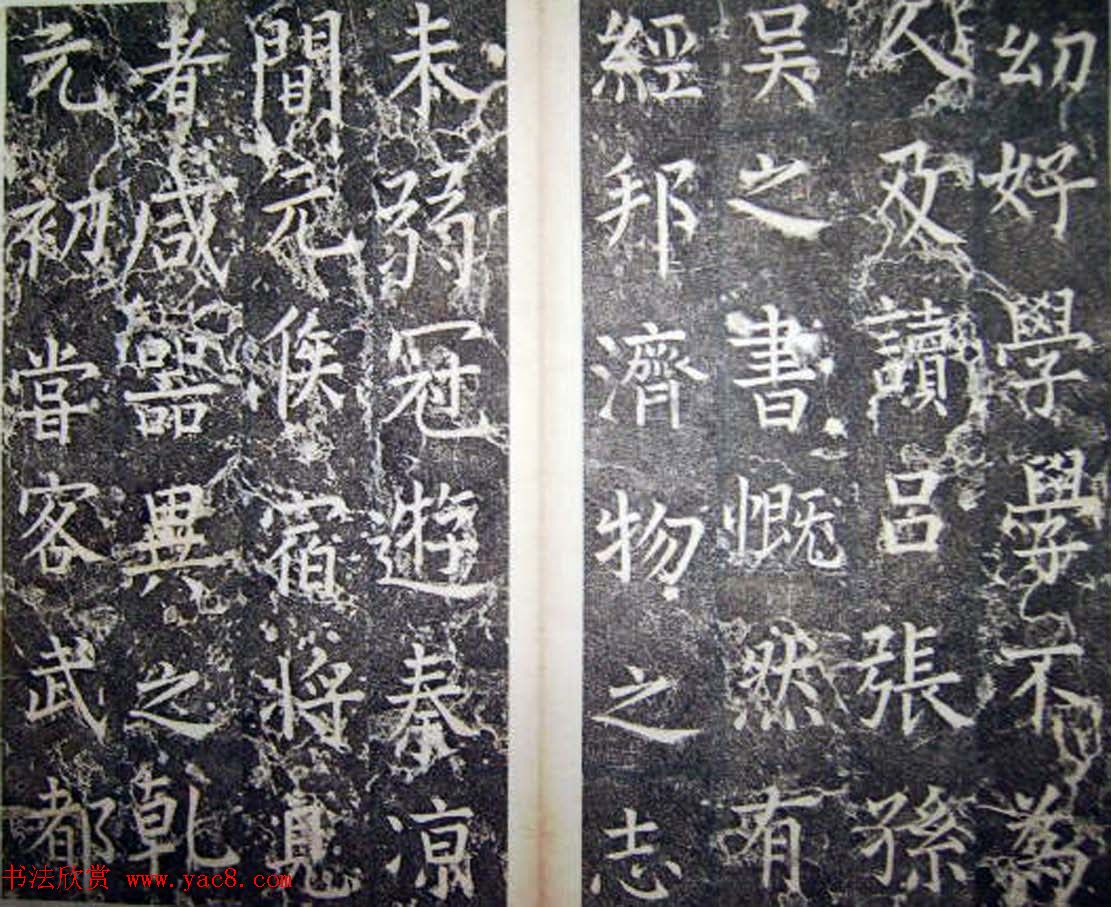 幼好學學不為
文及讀呂張孫
吳之書慨然有
經邦濟物之志
未弱冠遊秦涼
間元侯宿將見
者咸器異之乾
元初嘗客武都
书法欣赏 www.yac8.com